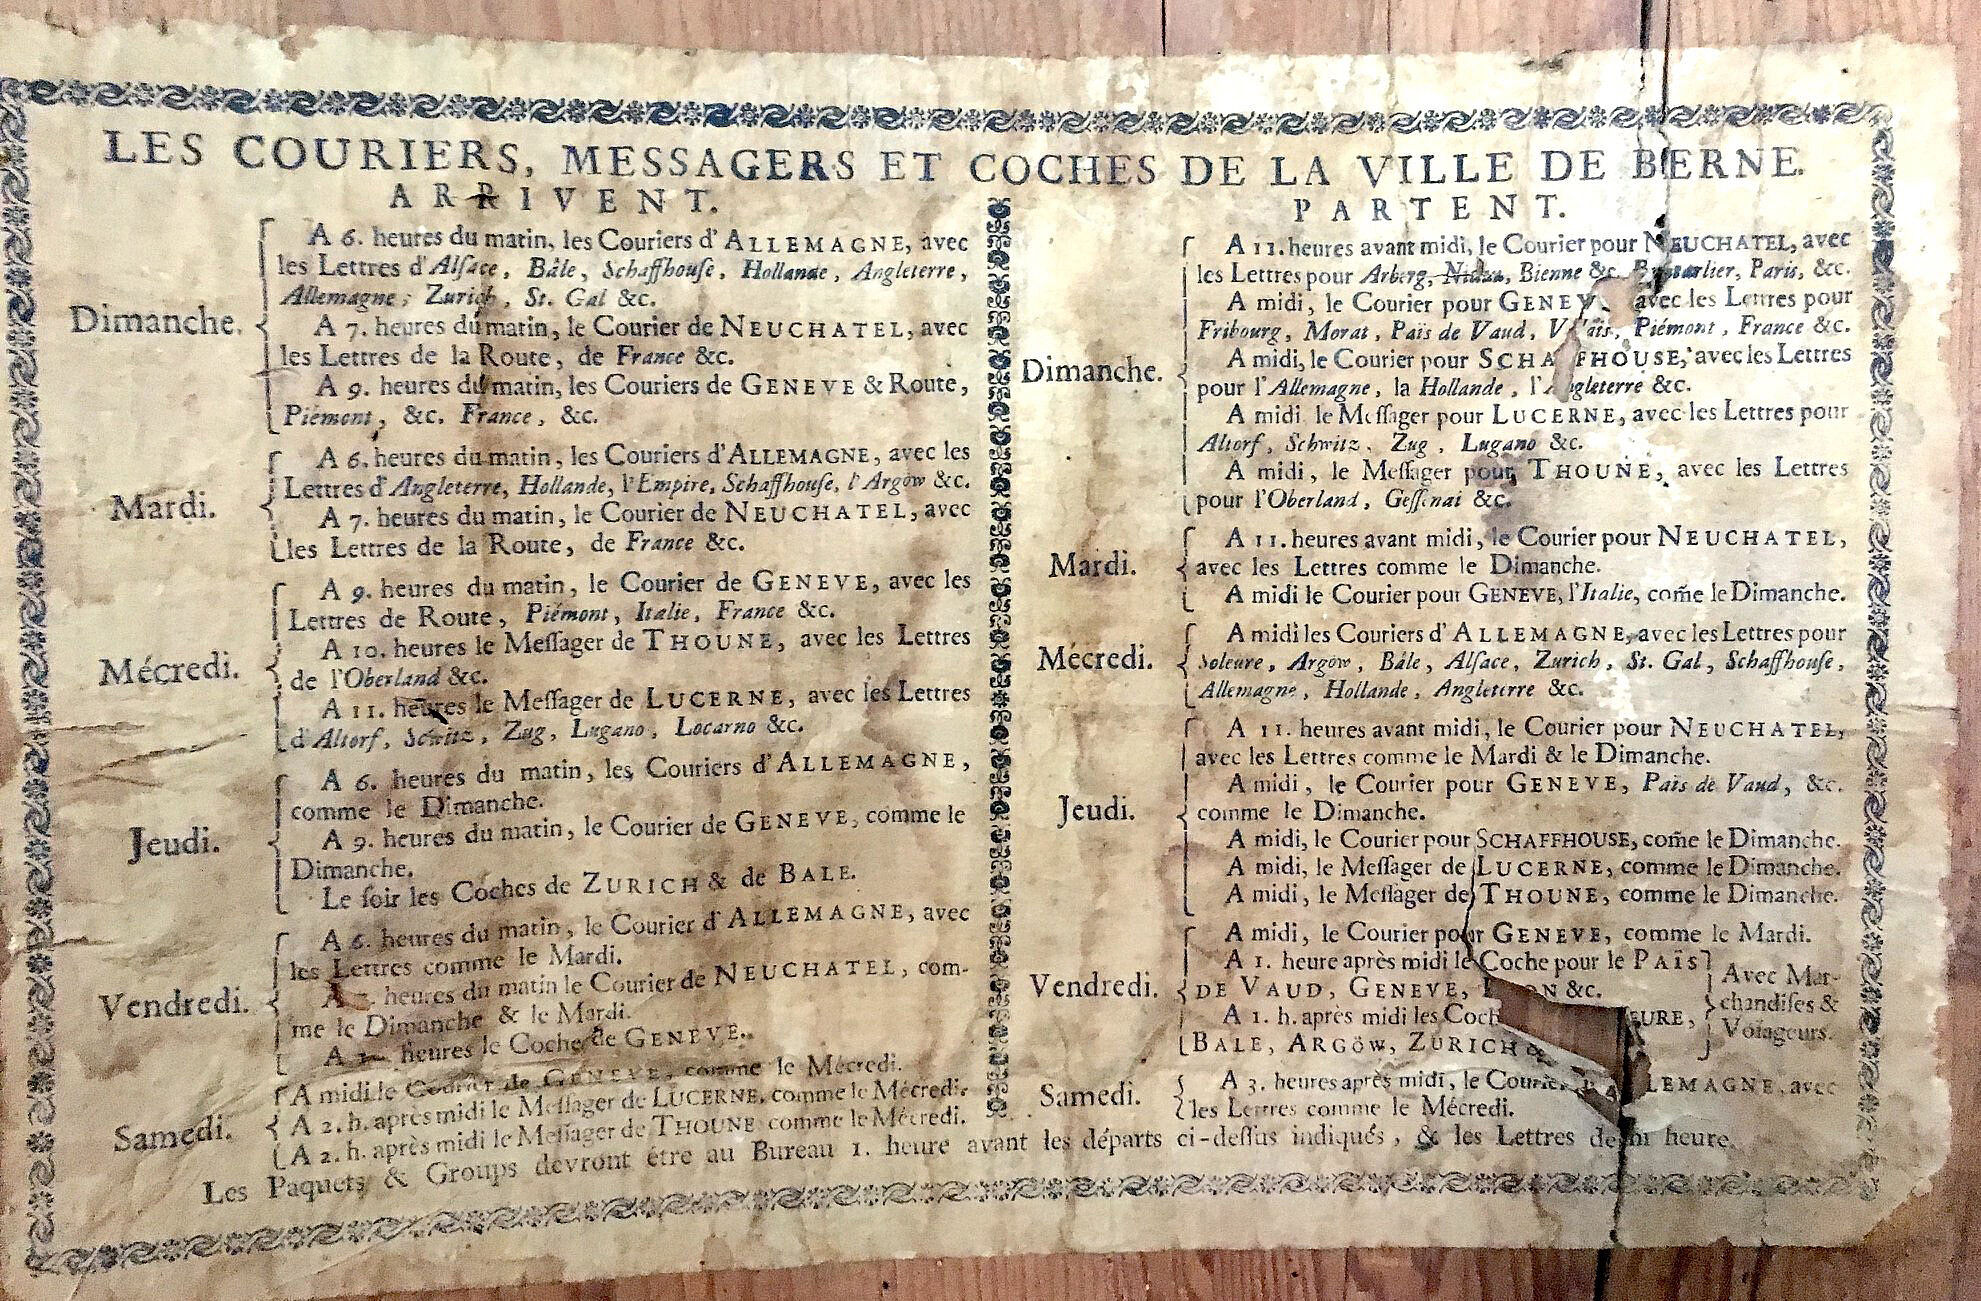 LES COURIERS, MESSAGERS ET COCHES DE LA VILLE DE BERNE.
ARRIVENT.
Dimanche.
A 6. heures du matin, les Couriers d'ALLEMAGNE, avec
les Lettres d'Alſace, Bâle, Schaffhouſe, Hollande, Angleterre,
Allemagne, Zurich, St. Gal &c.
A 7. heures du matin, le Courier de NEUCHATEL, avec
les Lettres de la Route, de France &c.
A 9. heures du matin, les Couriers de GENEVE & Route,
Piémont, &c. France, &c.
Mardi.
A 6. heures du matin, les Couriers d'ALLEMAGNE, avec les
Lettres d'Angleterre, Hollande, l'Empire, Schaffhouſe, l'Argöw &c.
A 7. heures du matin, le Courier de NEUCHATEL, avec
les Lettres de la Route, de France &c.
Mécredi.
A 9. heures du matin, le Courier de GENEVE, avec les
Lettres de Route, Piémont, Italie, France &c.
A 10. heures le Meſſager de THOUNE, avec les Lettres
de l'Oberland &c.
A 11. heures le Meſſager de LUCERNE, avec les Lettres
d'Altorf, Zug, Lugano, Locarno &c.
Jeudi.
A 6. heures du matin, les Couriers d'ALLEMAGNE,
comme le Dimanche.
A 9. heures du matin, le Courier de GENEVE, comme le
Dimanche.
Le ſoir les Coches de ZURICH & de BALE.
Vendredi.
A 6. heures du matin, le Courier d'ALLEMAGNE, avec
les Lettres comme le Mardi.
A heures du matin le Courier de NEUCHATEL, com-
me le Dimanche & le Mardi.
A heures le Coche de GENEVE.
Samedi.
A midi le Courier de GENEVE, comme le Mécredi.
A 2. h. après midi le Meſſager de LUCERNE, comme le Mécredi.
A 2. h. après midi le Meſſager de THOUNE comme le Mécredi.
PARTENT.
Dimanche.
A 11. heures avant midi, le Courier pour NEUCHATEL, avec
les Lettres pour Arberg, Bienne &c. Paris, &c.
A midi, le Courier pour avec les Lettres pour
Fribourg, Morat, Païs de Vaud, Piémont, France &c.
A midi, le Courier pour SCHAFFHOUSE, avec les Lettres
pour l'Allemagne, la Hollande, l'Angleterre &c.
A midi, le Meſſager pour LUCERNE, avec les Lettres pour
Altorf, Schwitz, Zug, Lugano &c.
A midi, le Meſſager pour THOUNE, avec les Lettres
pour l'Oberland, Geſſenai &c.
Mardi.
A 11. heures avant midi, le Courier pour NEUCHATEL,
avec les Lettres comme le Dimanche.
A midi le Courier pour GENEVE, l'Italie, com̃e le Dimanche.
Mécredi.
A midi les Couriers d'ALLEMAGNE, avec les Lettres pour
Soleure, Argöw, Bâle, Alſace, Zurich, St. Gal, Schaffhouſe,
Allemagne, Hollande, Angleterre &c.
Jeudi.
A 11. heures avant midi, le Courier pour NEUCHATEL,
avec les Lettres comme le Mardi & le Dimanche.
A midi, le Courier pour GENEVE, Païs de Vaud, &c.
comme le Dimanche.
A midi, le Courier pour SCHAFFHOUSE, com̃e le Dimanche.
A midi, le Meſſager de LUCERNE, comme le Dimanche.
A midi, le Meſſager de THOUNE, comme le Dimanche.
Vendredi.
A midi, le Courier pour GENEVE, comme le Mardi.
A 1. heure après midi le Coche pour le PAÏS
DE VAUD, GENEVE, &c.
A 1. h. après midi les
BALE, ARGÖW, ZURICH
Avec Mar-
chandiſes &
Voïageurs.
Samedi.
A 3. heures après midi, le Courier avec
les Lettres comme le Mécredi.
Les Paquets & Groups devront être au Bureau 1. heure avant les départs ci-deſſus indiqués, & les Lettres demi heure.